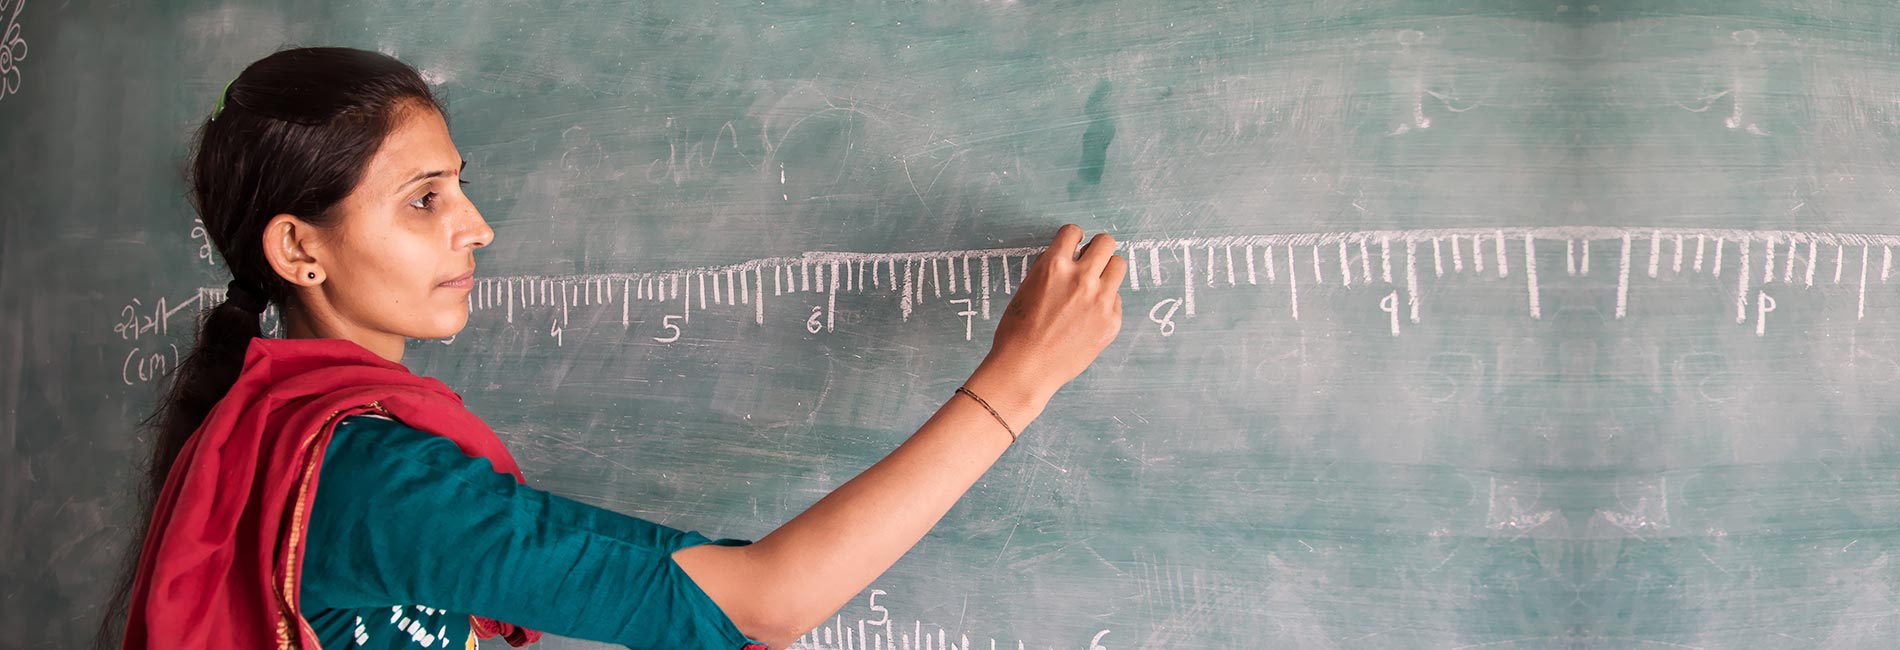 સેમી
(cm)
4 5 6 7 8 9
5 6